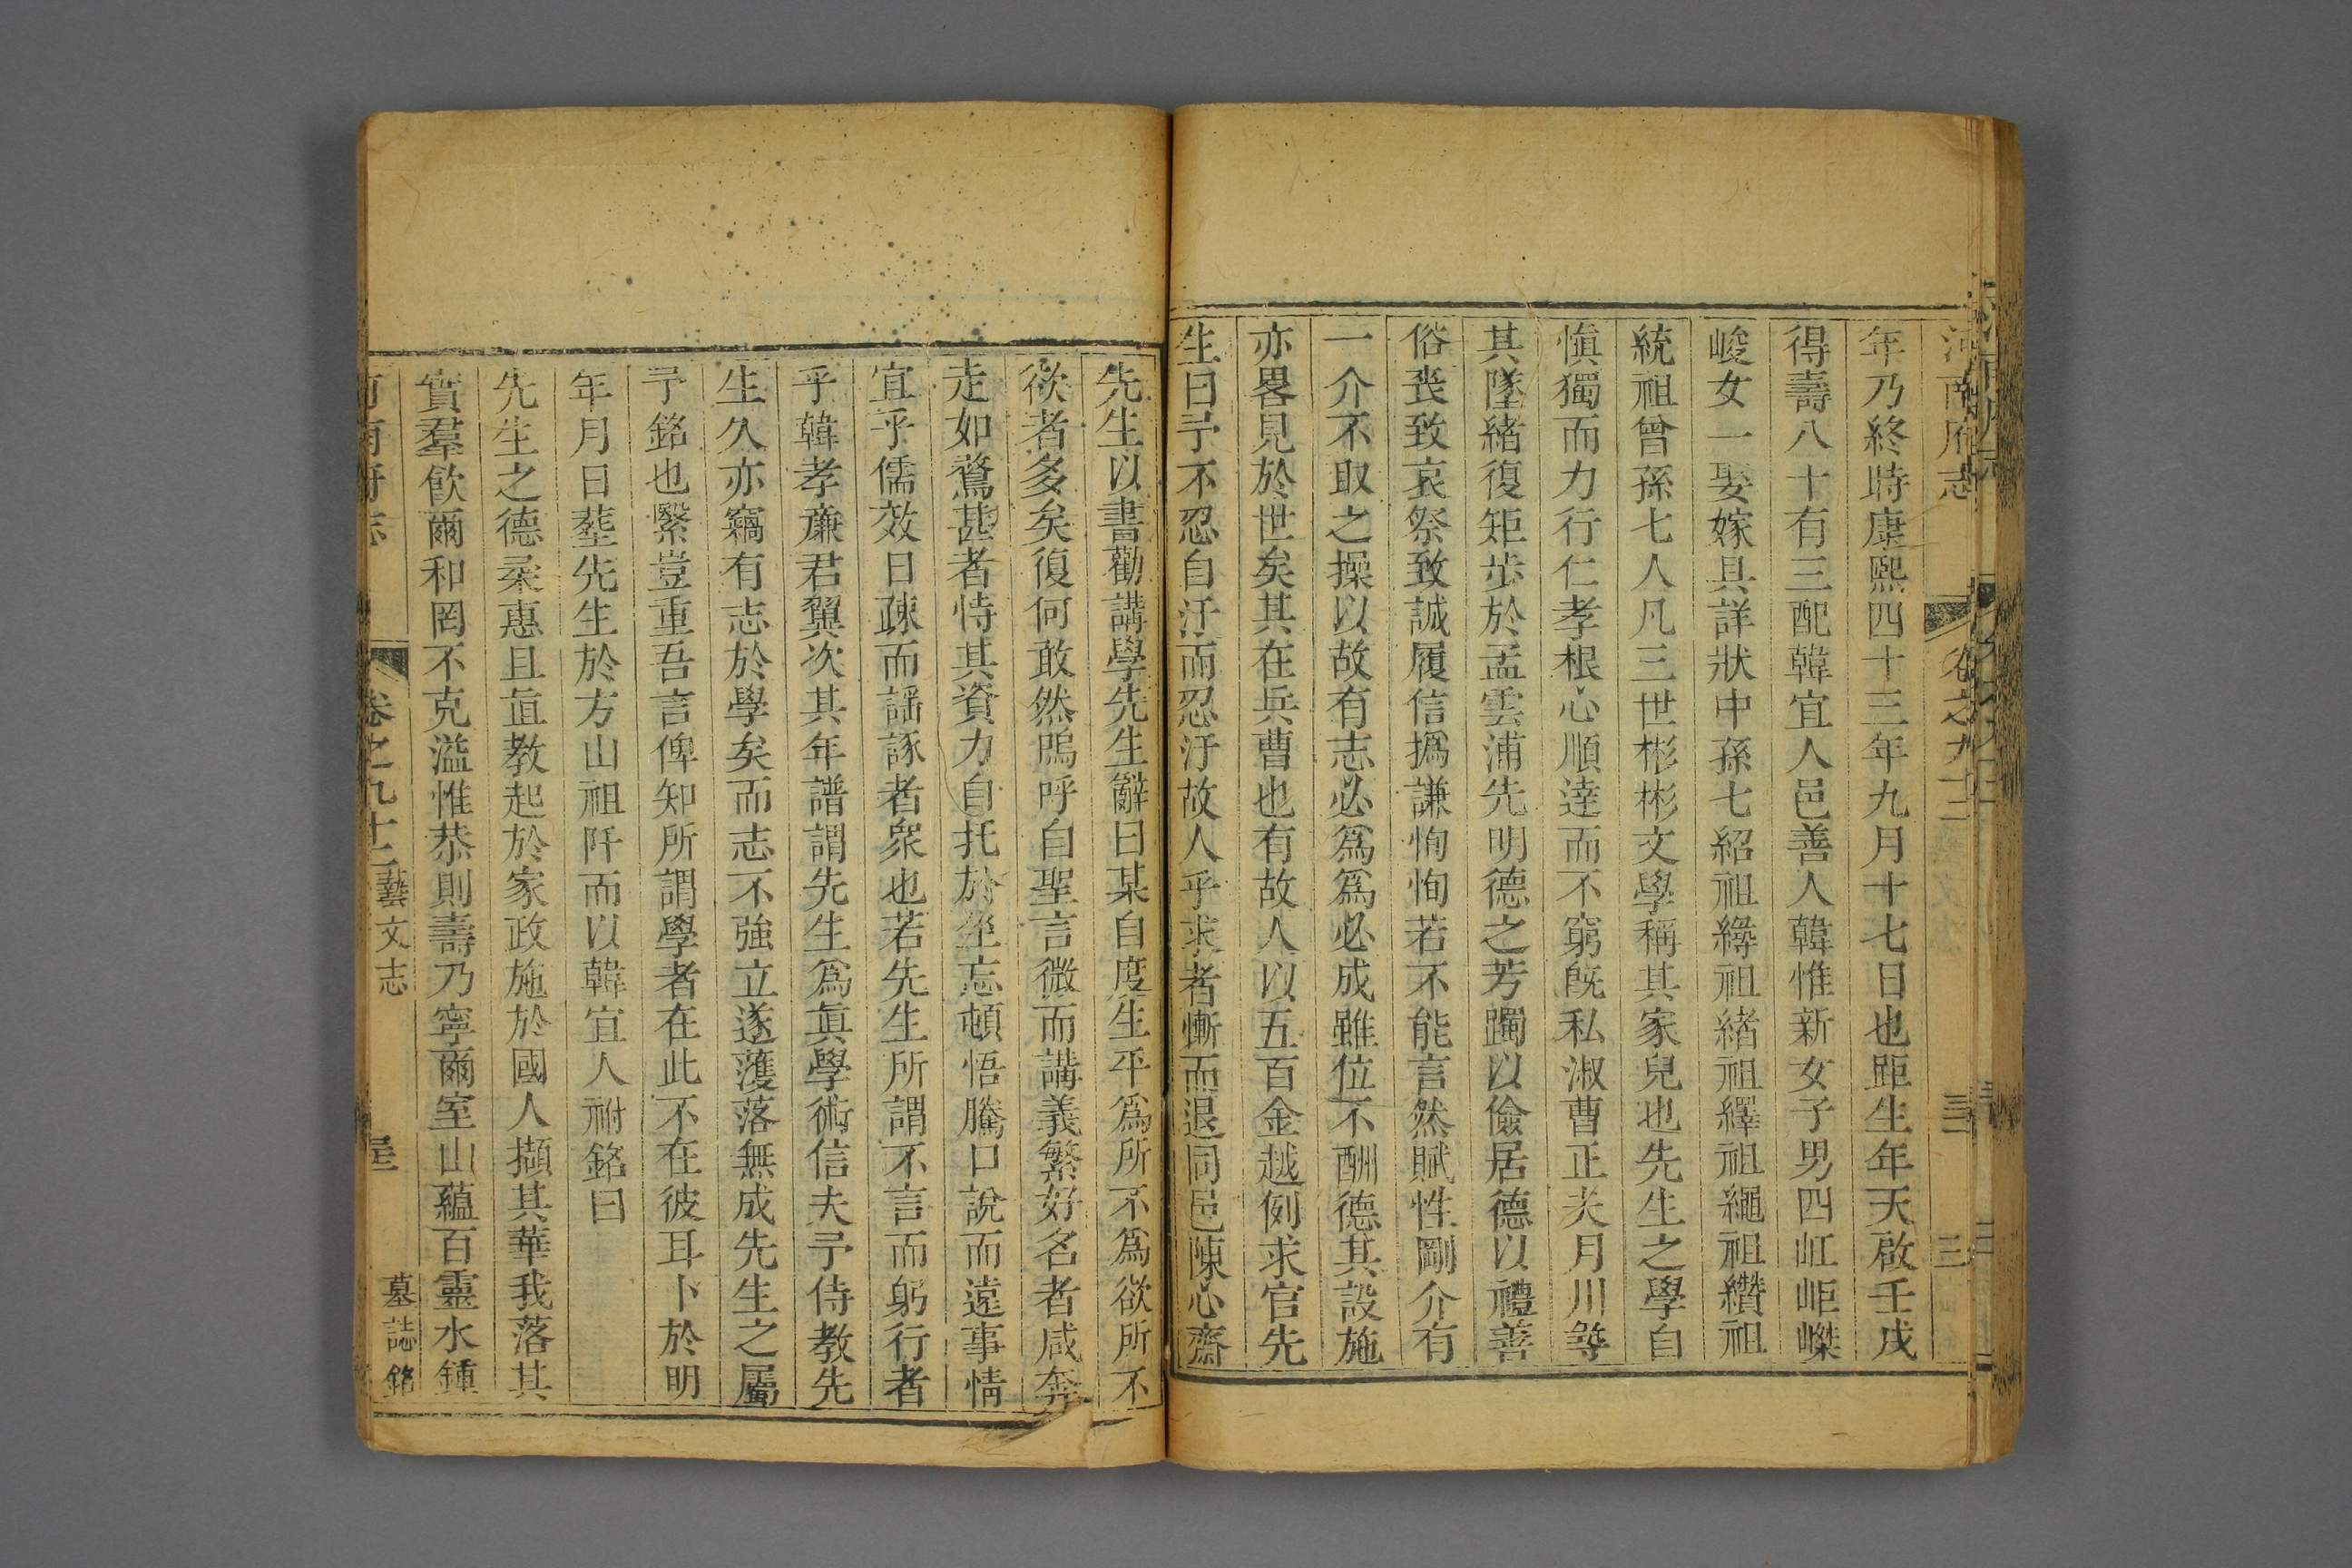 河南府志 卷之九十二 三
年乃終時康熙四十三年九月十七日也距生年天啟壬戌
得壽八十有三配韓宜人邑善人韓惟新女子男四屸岠嵥
峻女一娶嫁具詳狀中孫七紹祖絳祖緒祖繹祖繩祖纘祖
統祖曾孫七人凡三世彬彬文學稱其家兒也先生之學自
愼獨而力行仁孝根心順達而不窮旣私淑曹正夫月川等
其墜緒復矩步於孟雲浦先明德之芳躅以儉居德以禮善
俗丧致哀祭致誠履信撝謙恂恂若不能言然賦性剛介有
一介不取之操以故有志必爲爲必成雖位不酬德其設施
亦畧見於世矣其在兵曹也有故人以五百金越例求官先
生曰予不忍自汙而忍汙故人乎求者慚而退同邑陳心齋
先生以書勸講學先生辭曰某自度生平爲所不爲欲所不
欲者多矣復何敢然嗚呼自聖言微而講義繁好名者咸奔
走如鶩甚者恃其資力自托於坐忘頓悟騰口說而遠事情
宜乎儒效日疎而謡諑者衆也若先生所謂不言而躬行者
乎韓孝亷君翼次其年譜謂先生爲眞學術信夫予侍教先
生久亦竊有志於學矣而志不強立遂蒦落無成先生之屬
予銘也緊豈重吾言俾知所謂學者在此不在彼耳卜於明
年月日葬先生於方山祖阡而以韓宜人祔銘曰
先生之德柔惠且直教起於家政施於國人擷其華我落其
實羣飮爾和罔不克溢惟恭則壽乃寧爾室山蘊百靈水鍾
河南府志 卷之九十二藝文志 墓誌銘